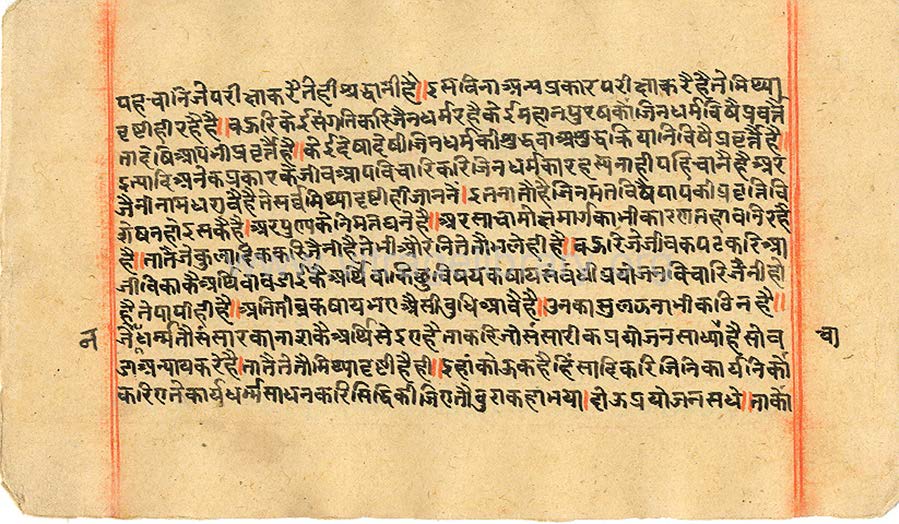 पहचानि जे परीक्षा करै तेही श्रद्धानी है॥ इस विना अन्य प्रकार परीक्षा करै है ते मिथ्या
दृष्टी ही रहै है॥ बऊरि केई संगति करि जैनधर्म रहै केई महान पुरषकौं जिनधर्मविषै प्रवर्त्तै
ता देषि आप भी प्रवर्त्तै है॥ केई देषादेषी जिनधर्म की शुद्ध वा अशुद्ध क्रियानिविषै प्रवर्त्तै है॥
इत्यादि अनेक प्रकार के जीव आप विचारि करि जिनधर्म का रहस्य नाही पहिचाने है अर
जैनी नाम धरावै है ते सर्व मिथ्यादृष्टी ही जानने। इतना तो है जिनमतविषै पाप की प्रवृत्ति वि
शेष न होइ सकै है॥ अर पुण्य के निमत घने है॥ अर साचा मोक्षमार्ग का भी कारण तहा वनि रहै
है॥ तातै जे कुलादिक करि जैनी है ते भी औरनितै तौ भले ही है॥ बऊरि जे जीव कपट करि आ
जीविका कै अर्थि वा वडाई कै अर्थि वा किछु विषयकषाय संबंधी प्रयोजन विचारि जैनी हो
है ते पापी ही है॥ अति तीव्र कषाय भए औसी बुधि आवै है॥ उनका सुलझना भी कठिन है॥
न जैनधर्म्म तौ संसार का नाश कै अर्थि सेइए है ताकरि जौ संसारीक प्रयोजन साध्या है सो व
डा अन्याय करै है॥ तातै ते तौ मिथ्यादृष्टी है ही॥ इहां कोऊ कहै हिंसादि करि जिनि कार्यनिकौं
करिए ते कार्य धर्म्म साधन करि सिद्धि कीजिए तौ वुरा कहा भया। दोऊ प्रयोजन सधे॥ ताकौं